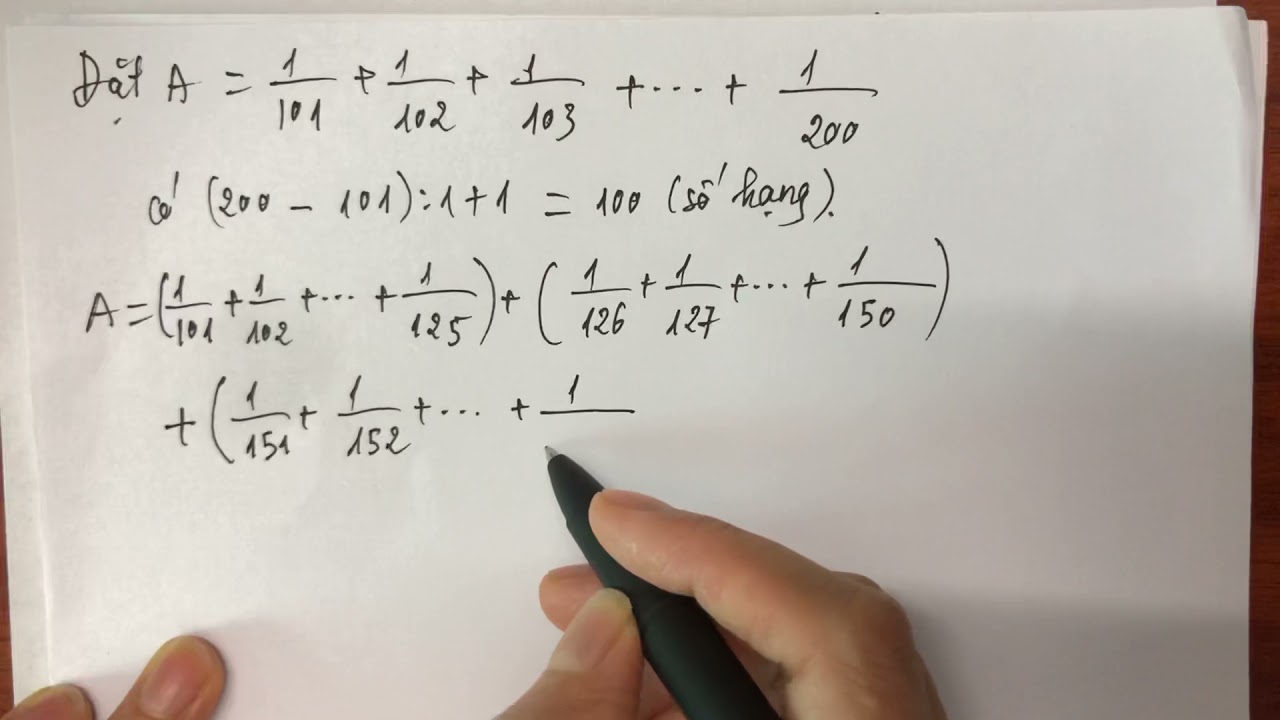 Đặt A = 1/101 + 1/102 + 1/103 + ... + 1/200
có (200 - 101):1+1 = 100 (số hạng).
A = (1/101 + 1/102 + ... + 1/125) + (1/126 + 1/127 + ... + 1/150)
+ (1/151 + 1/152 + ... + 1/